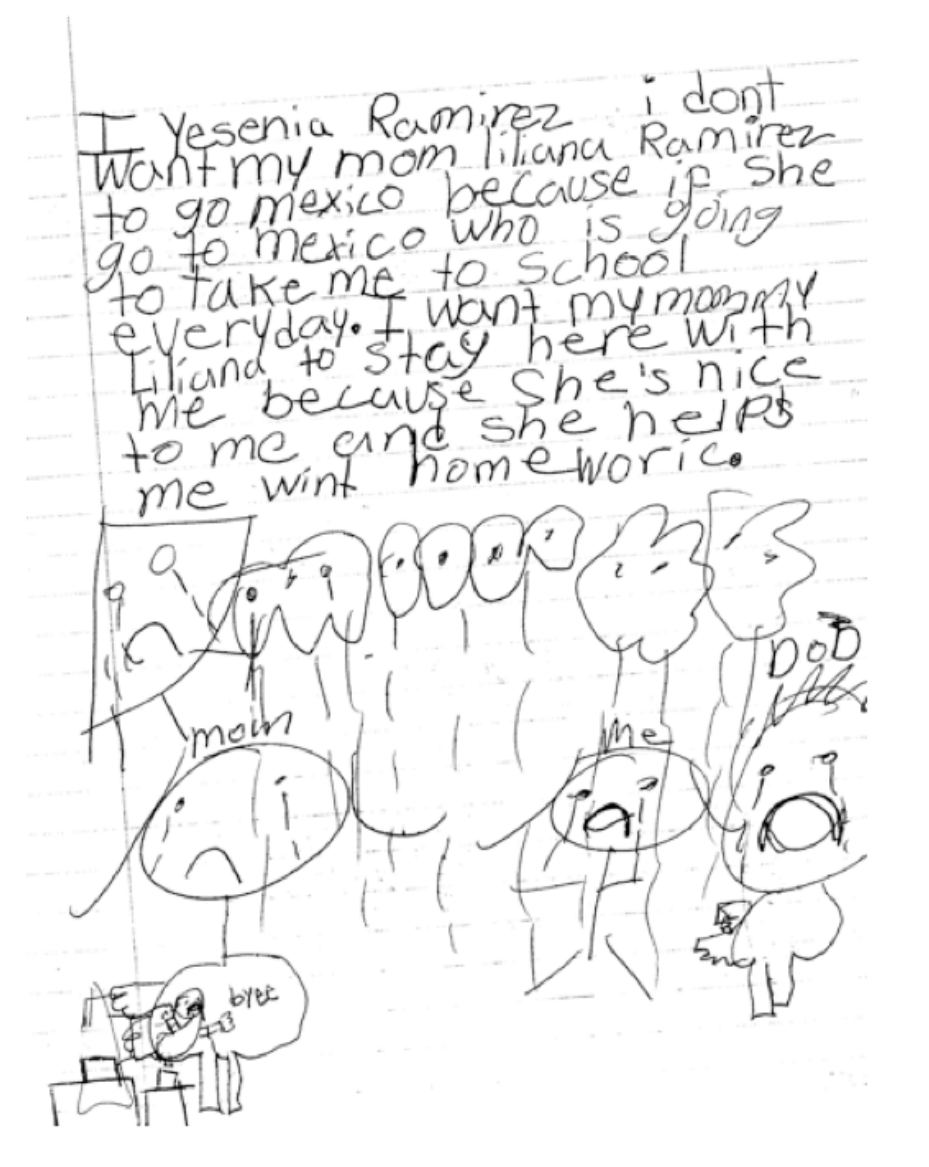 I Yesenia Ramirez i dont
want my mom liliana Ramirez
to go mexico because if she
go to mexico who is going
to take me to school
everyday. I want my mommy
Liliana to stay here with
me because she's nice
to me and she helps
me wint homeworic.
DoD
mom
me
byee